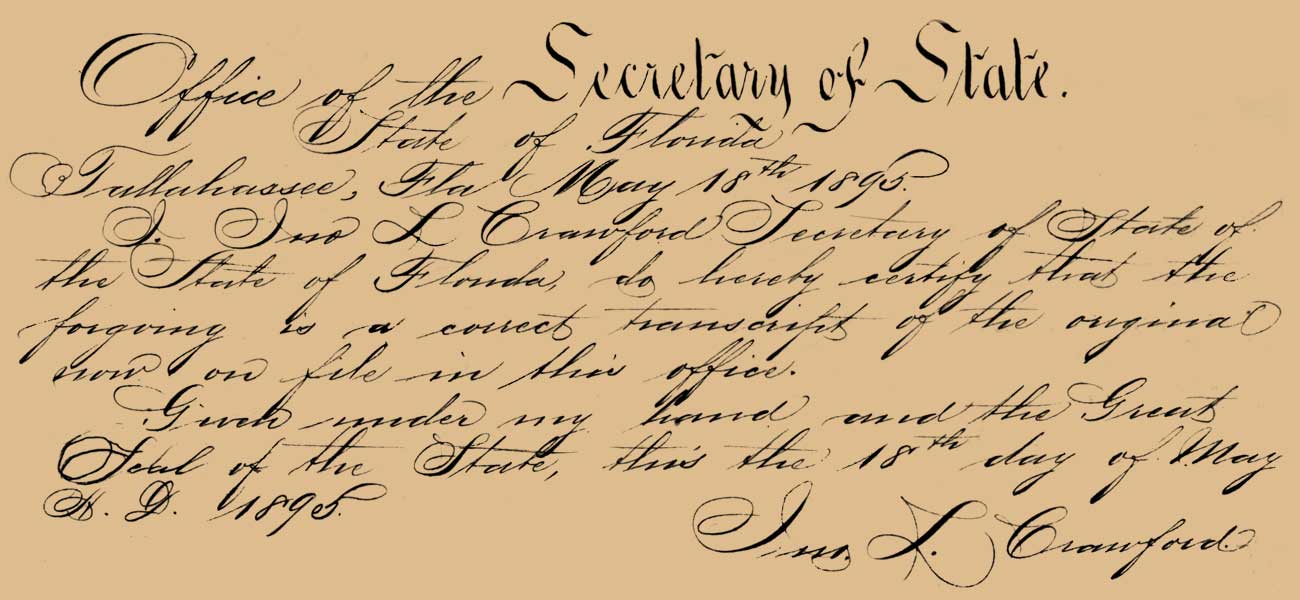 Office of the Secretary of State.
State of Florida
Tallahassee, Fla May 18th 1895.
I. Jno L Crawford Secretary of State of
the State of Florida, do hereby certify that the
forgoing is a correct transcript of the original
now on file in this office.
Given under my hand and the Great
Seal of the State, this the 18th day of May
A. D. 1895.
Jno. L. Crawford.